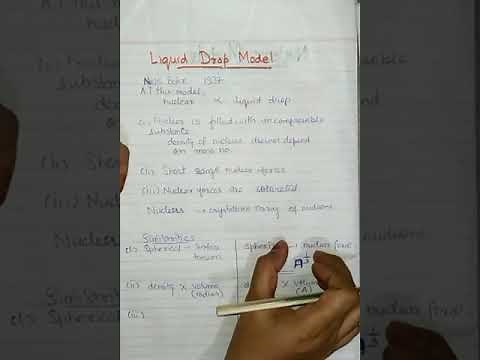 Liquid Drop Model
Neils Bohr 1937
A.T this model,
nuclear ∝ liquid drop
(i) Nuclear is filled with incompressible
substance
density of nucleus doesnot depend
on mass no.
(ii) Short range nuclear forces
(iii) Nuclear forces are saturated
Nucleus → crystalline array of nucleons
Similarities
(i) Spherical → surface
tension
spherical → nuclear force
A^1/3
(ii) density × volume
(radius)
× volume
(A)
(iii)